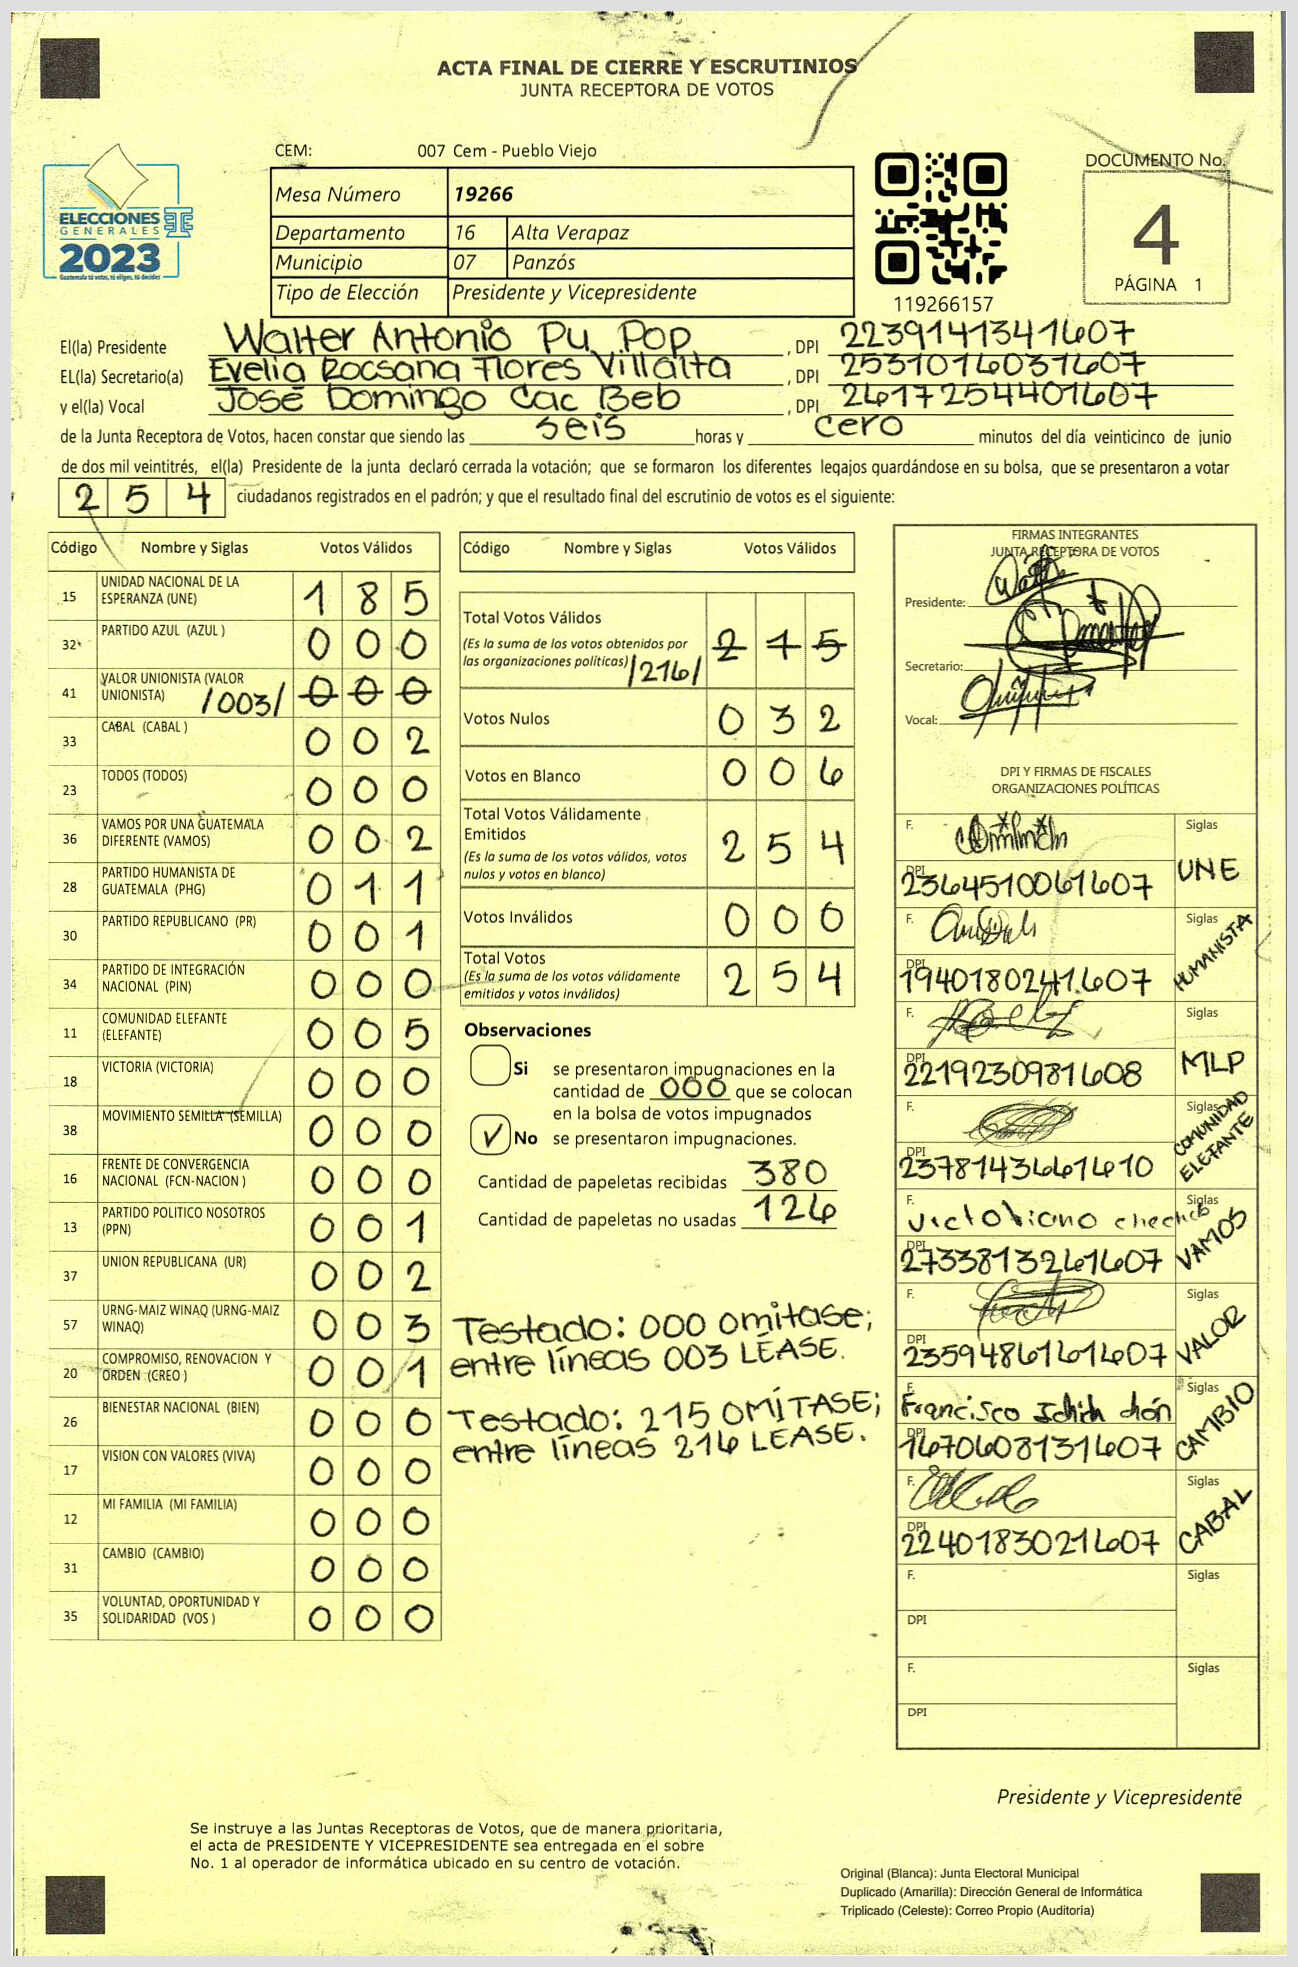 ACTA FINAL DE CIERRE Y ESCRUTINIOS
JUNTA RECEPTORA DE VOTOS
CEM: 007 Cem - Pueblo Viejo
Mesa Número 19266
Departamento 16 Alta Verapaz
Municipio 07 Panzós
Tipo de Elección Presidente y Vicepresidente
ELECCIONES
GENERALES
2023
Guatemala tú votas, tú eliges, tú decides
119266157
DOCUMENTO No.
4
PÁGINA 1
El(la) Presidente Walter Antonio Pu Pop , DPI 2239141341607
EL(la) Secretario(a) Evelia Rocsana Flores Villalta , DPI 2531016031607
y el(la) Vocal José Domingo Cac Beb , DPI 2617254401607
de la Junta Receptora de Votos, hacen constar que siendo las seis horas y cero minutos del día veinticinco de junio
de dos mil veintitrés, el(la) Presidente de la junta declaró cerrada la votación; que se formaron los diferentes legajos guardándose en su bolsa, que se presentaron a votar
2 5 4 ciudadanos registrados en el padrón; y que el resultado final del escrutinio de votos es el siguiente:
Código Nombre y Siglas Votos Válidos
15 UNIDAD NACIONAL DE LA ESPERANZA (UNE) 1 8 5
32 PARTIDO AZUL (AZUL ) 0 0 0
41 VALOR UNIONISTA (VALOR UNIONISTA) /003/ 0 0 0
33 CABAL (CABAL ) 0 0 2
23 TODOS (TODOS) 0 0 0
36 VAMOS POR UNA GUATEMALA DIFERENTE (VAMOS) 0 0 2
28 PARTIDO HUMANISTA DE GUATEMALA (PHG) 0 1 1
30 PARTIDO REPUBLICANO (PR) 0 0 1
34 PARTIDO DE INTEGRACIÓN NACIONAL (PIN) 0 0 0
11 COMUNIDAD ELEFANTE (ELEFANTE) 0 0 5
18 VICTORIA (VICTORIA) 0 0 0
38 MOVIMIENTO SEMILLA (SEMILLA) 0 0 0
16 FRENTE DE CONVERGENCIA NACIONAL (FCN-NACION ) 0 0 0
13 PARTIDO POLITICO NOSOTROS (PPN) 0 0 1
37 UNION REPUBLICANA (UR) 0 0 2
57 URNG-MAIZ WINAQ (URNG-MAIZ WINAQ) 0 0 3
20 COMPROMISO, RENOVACION Y ORDEN (CREO ) 0 0 1
26 BIENESTAR NACIONAL (BIEN) 0 0 0
17 VISION CON VALORES (VIVA) 0 0 0
12 MI FAMILIA (MI FAMILIA) 0 0 0
31 CAMBIO (CAMBIO) 0 0 0
35 VOLUNTAD, OPORTUNIDAD Y SOLIDARIDAD (VOS ) 0 0 0
Código Nombre y Siglas Votos Válidos
Total Votos Válidos 2 1 5
(Es la suma de los votos obtenidos por
las organizaciones políticas) /216/
Votos Nulos 0 3 2
Votos en Blanco 0 0 6
Total Votos Válidamente
Emitidos 2 5 4
(Es la suma de los votos válidos, votos
nulos y votos en blanco)
Votos Inválidos 0 0 0
Total Votos 2 5 4
(Es la suma de los votos válidamente
emitidos y votos inválidos)
Observaciones
Si se presentaron impugnaciones en la
cantidad de 000 que se colocan
en la bolsa de votos impugnados
✓ No se presentaron impugnaciones.
Cantidad de papeletas recibidas 380
Cantidad de papeletas no usadas 126
Testado: 000 omitase;
entre líneas 003 LÉASE.
Testado: 215 OMÍTASE;
entre líneas 216 LEASE.
FIRMAS INTEGRANTES
JUNTA RECEPTORA DE VOTOS
Presidente:
Secretario:
Vocal:
DPI Y FIRMAS DE FISCALES
ORGANIZACIONES POLÍTICAS
F. Siglas
DPI 2364510061607 UNE
F. Siglas
DPI 1940180241607 HUMANISTA
F. Siglas
DPI 2219230981608 MLP
F. Siglas
DPI 2378143661610 COMUNIDAD ELEFANTE
F. Siglas
DPI 2733813261607 VAMOS
F. Siglas
DPI 2359486161607 VALOR
F. Francisco Siglas
DPI 1670608131607 CAMBIO
F. Siglas
DPI 2240183021607 CABAL
F. Siglas
DPI
F. Siglas
DPI
Presidente y Vicepresidente
Se instruye a las Juntas Receptoras de Votos, que de manera prioritaria,
el acta de PRESIDENTE Y VICEPRESIDENTE sea entregada en el sobre
No. 1 al operador de informática ubicado en su centro de votación.
Original (Blanca): Junta Electoral Municipal
Duplicado (Amarilla): Dirección General de Informática
Triplicado (Celeste): Correo Propio (Auditoría)